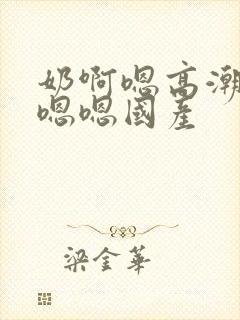 奶啊嗯高潮
嗯嗯國產
梁金華